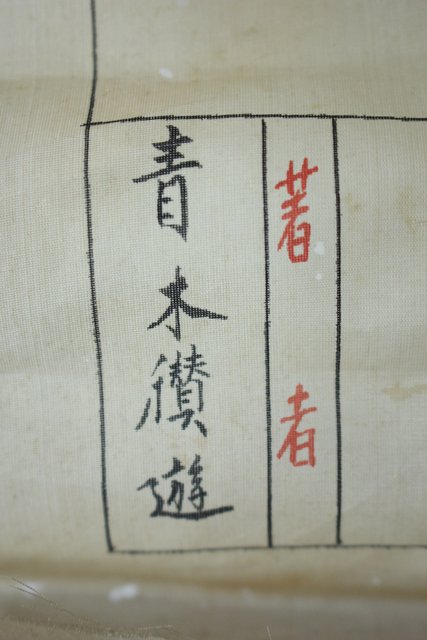 著者
青木儹遊